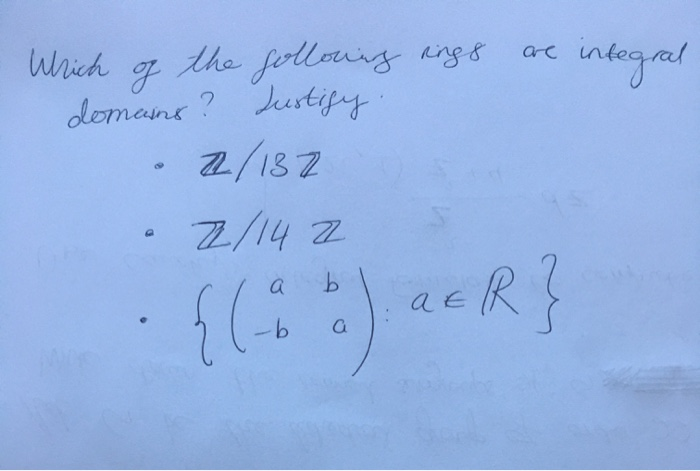 Which of the following rings are integral
domains? Justify.
• ℤ/13ℤ
• ℤ/14ℤ
• {( a b
-b a ) : a ∈ ℝ}